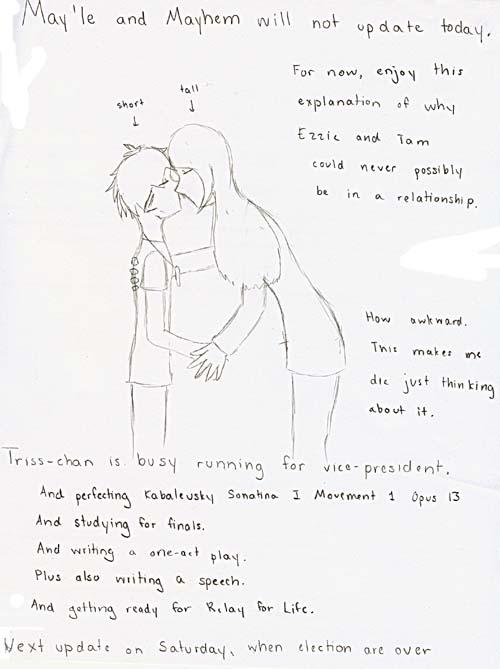 May'le and Mayhem will not update today.
For now, enjoy this
explanation of why
Ezzie and Tam
could never possibly
be in a relationship.
short
tall
How awkward.
This makes me
die just thinking
about it.
Triss-chan is busy running for vice-president.
And perfecting Kabalevsky Sonatina I Movement 1 Opus 13
And studying for finals.
And writing a one-act play.
Plus also writing a speech.
And getting ready for Relay for Life.
Next update on Saturday, when election are over